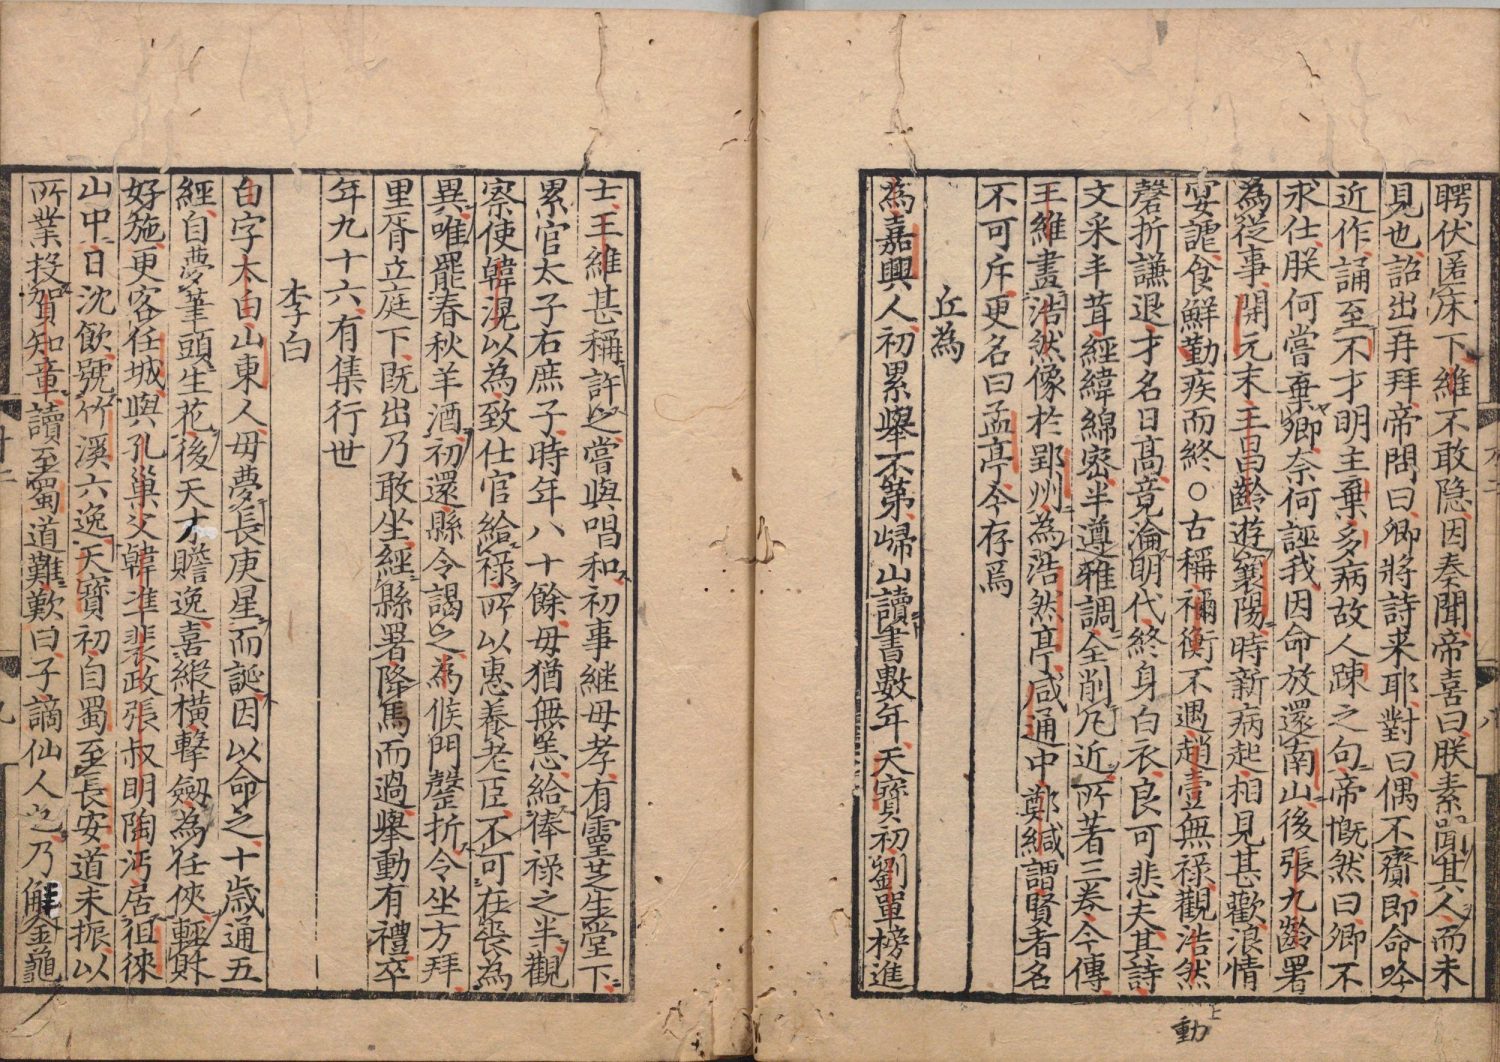 聘伏匿床下維不敢隱因奏聞帝喜曰朕素聞其人而未
見也詔出再拜帝問曰卿將詩来耶對曰偶不齎即命吟
近作誦至不才明主棄多病故人踈之句帝慨然曰卿不
求仕朕何嘗棄卿奈何誣我因命放還南山後張九齡署
為從事開元末王昌齡遊襄陽時新病起相見甚歡浪情
宴謔食鮮勤疾而終○古稱禰衡不遇趙壹無禄觀浩然
磬折謙退才名日高竟淪明代終身白衣良可悲夫其詩
文采丰茸經緯綿密半遵雅調全削凡近所著三巻今傳
王維畫浩然像於郢州為浩然亭咸通中鄭緘謂賢者名
不可斥更名曰孟亭今存焉
丘為
為嘉興人初累舉不第歸山讀書數年天寶初劉單榜進
動
士王維甚稱許之嘗與唱和初事継母孝有靈芝生堂下
累官太子右庶子時年八十餘母猶無恙給俸禄之半觀
察使韓滉以為致仕官給禄所以惠養老臣不可在喪為
異唯罷春秋羊酒初還縣令謁之為候門磬折令坐方拜
里胥立庭下既出乃敢坐經縣署降馬而過舉動有禮卒
年九十六有集行世
李白
白字太白山東人母夢長庚星而誕因以命之十歳通五
經自夢筆頭生花後天才贍逸喜縦橫擊劔為任俠輕財
好施更客任城與孔巢父韓准裴政張叔明陶沔居徂徠
山中日沈飲號竹溪六逸天寶初自蜀至長安道未振以
所業投賀知章讀至蜀道難歎曰子謫仙人也乃解金龜